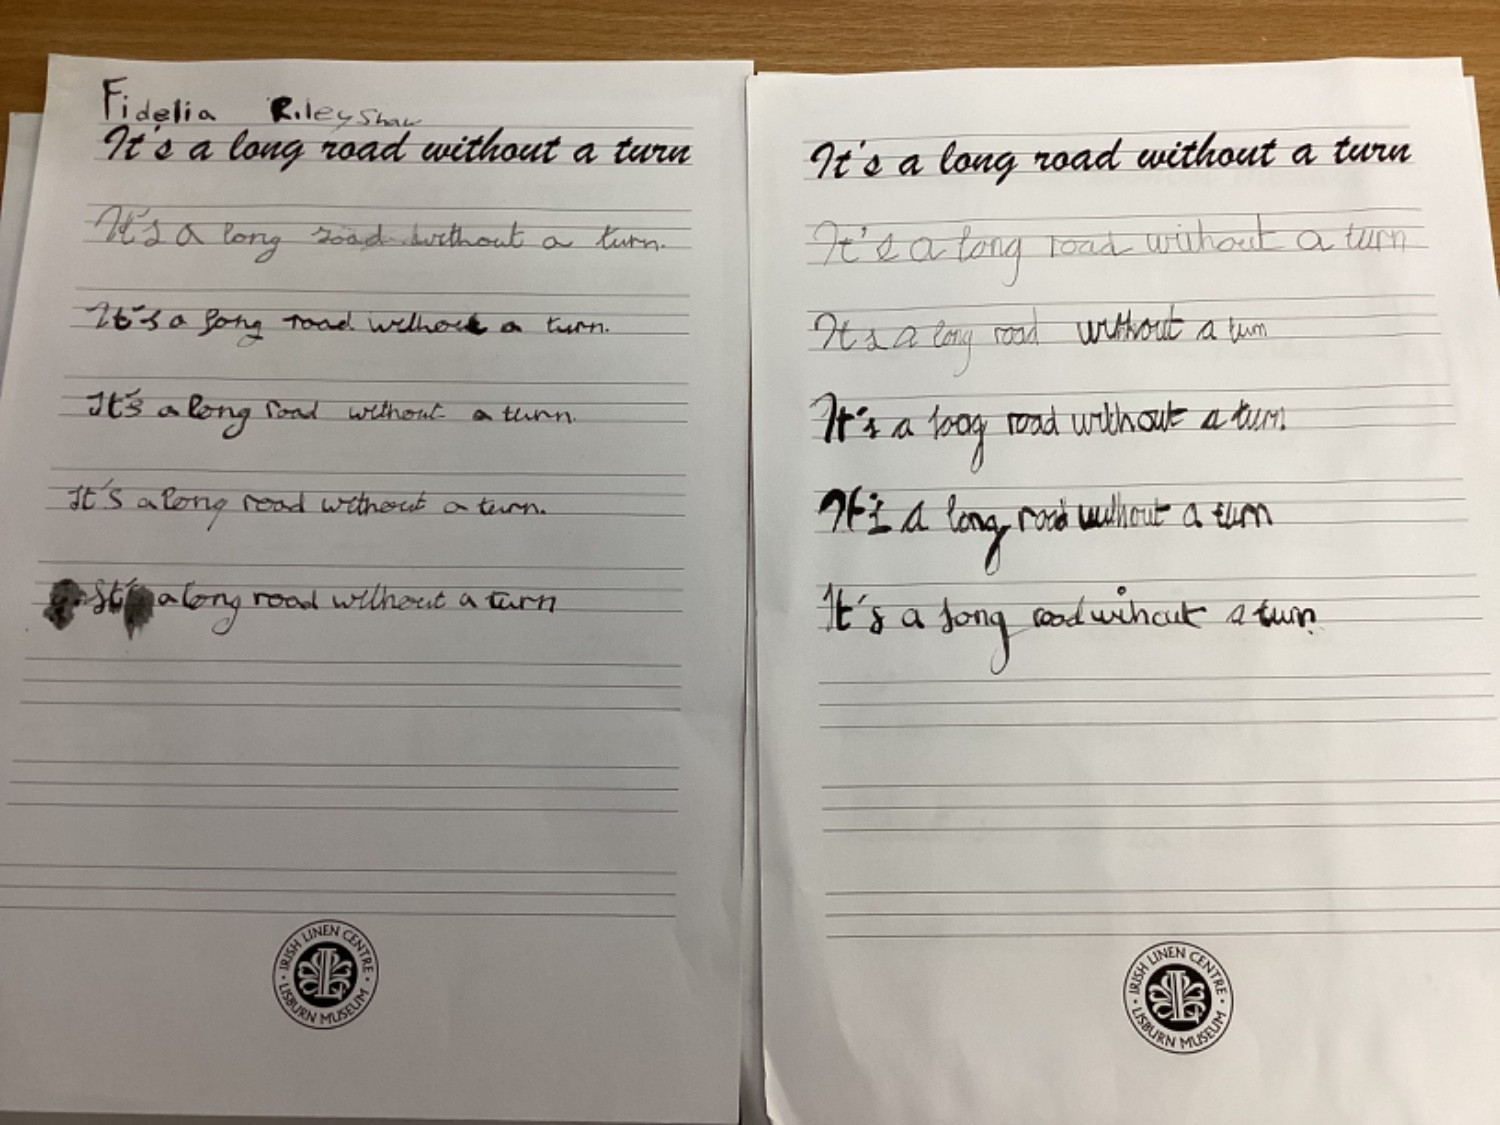 Fidelia Riley Shaw
It's a long road without a turn
It's a long road without a turn.
It's a long road without a turn.
It's a long road without a turn.
It's a long road without a turn.
It's a long road without a turn
IRISH LINEN CENTRE
LISBURN MUSEUM
It's a long road without a turn
It's a long road without a turn
Its a long road without a turn
It's a loog road without a turn
It's a long road without a turn
It's a long road wihout a turn.
IRISH LINEN CENTRE
LISBURN MUSEUM